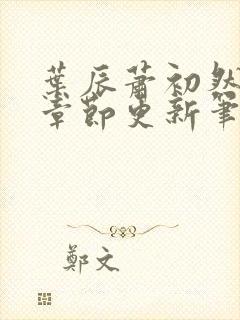 葉辰蕭初然
章節更新筆
鄭文